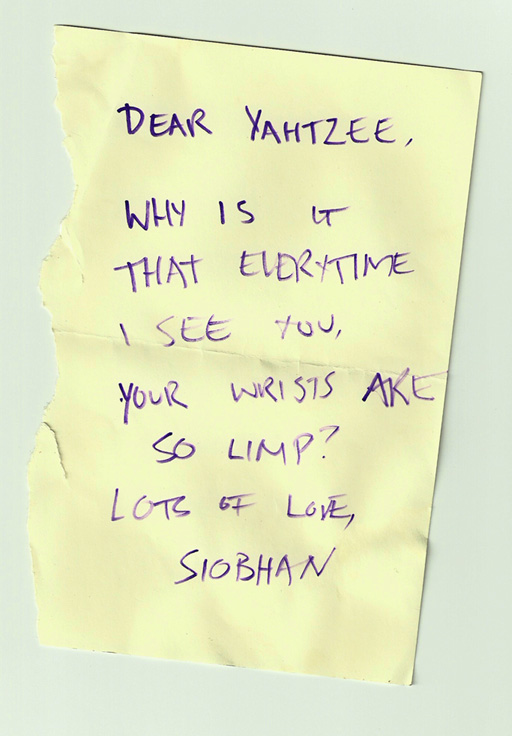 DEAR YAHTZEE,
WHY IS IT
THAT EVERYTIME
I SEE YOU,
YOUR WRISTS ARE
SO LIMP?
LOTS OF LOVE,
SIOBHAN